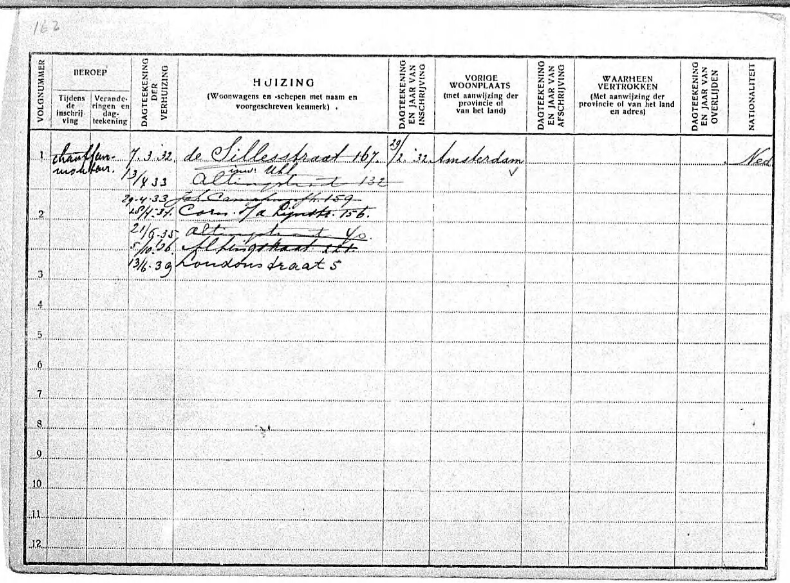 162
VOLGNUMMER
BEROEP
Tijdens de inschrij ving
Verande- ringen en dag- teekening
DAGTEEKENING DER VERHUIZING
HUIZING
(Woonwagens en -schepen met naam en
voorgeschreven kenmerk)
DAGTEEKENING EN JAAR VAN INSCHRIJVING
VORIGE
WOONPLAATS
(met aanwijzing der
provincie of
van het land)
DAGTEEKENING EN JAAR VAN AFSCHRIJVING
WAARHEEN
VERTROKKEN
(Met aanwijzing der
provincie of van het land
en adres)
DAGTEEKENING EN JAAR VAN OVERLIJDEN
NATIONALITEIT
1 chauffeur- 7.3.'32. de Sillestraat 167. 29/2 '32 Amsterdam Ned
monteur.
13/4 33 Altingstraat 132
29.4.33 159
2 28/4.34. Corn. 156.
21/6.35 Altingstraat 40.
5/10.36 Altingstraat
3 13/6.39 Loudonstraat 5
4
5
6
7
8
9
10
11
12